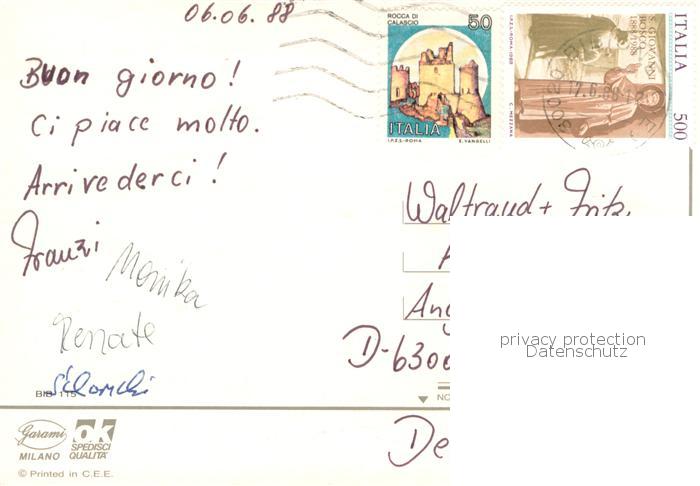 06.06.88
ROCCA DI CALASCIO
50
ITALIA
I.P.Z.S.-ROMA E. VANGELLI
ITALIA
500
S. GIOVANNI BOSCO
1888-1988
I.P.Z.S.-ROMA-1988
C. MEZZANA
Buon giorno!
Ci piace molto.
Arrivederci!
Franzi
Monika
Renate
Waltraud + Fritz
D-6300
privacy protection
Datenschutz
BIB 115
Garami
MILANO
ok
SPEDISCI
QUALITÀ
© Printed in C.E.E.